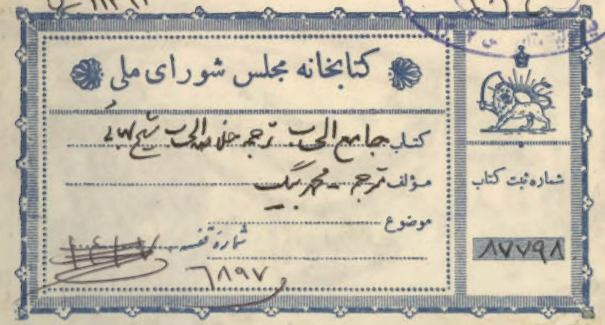 کتابخانه مجلس شورای ملی
کتاب جامع الحساب ترجمه خلاصه الحساب شیخ بهائی
مؤلف ترجمه محمد بیگ
موضوع
شماره قفسه
۶۸۹۷
شماره ثبت کتاب
۸۷۷۹۸